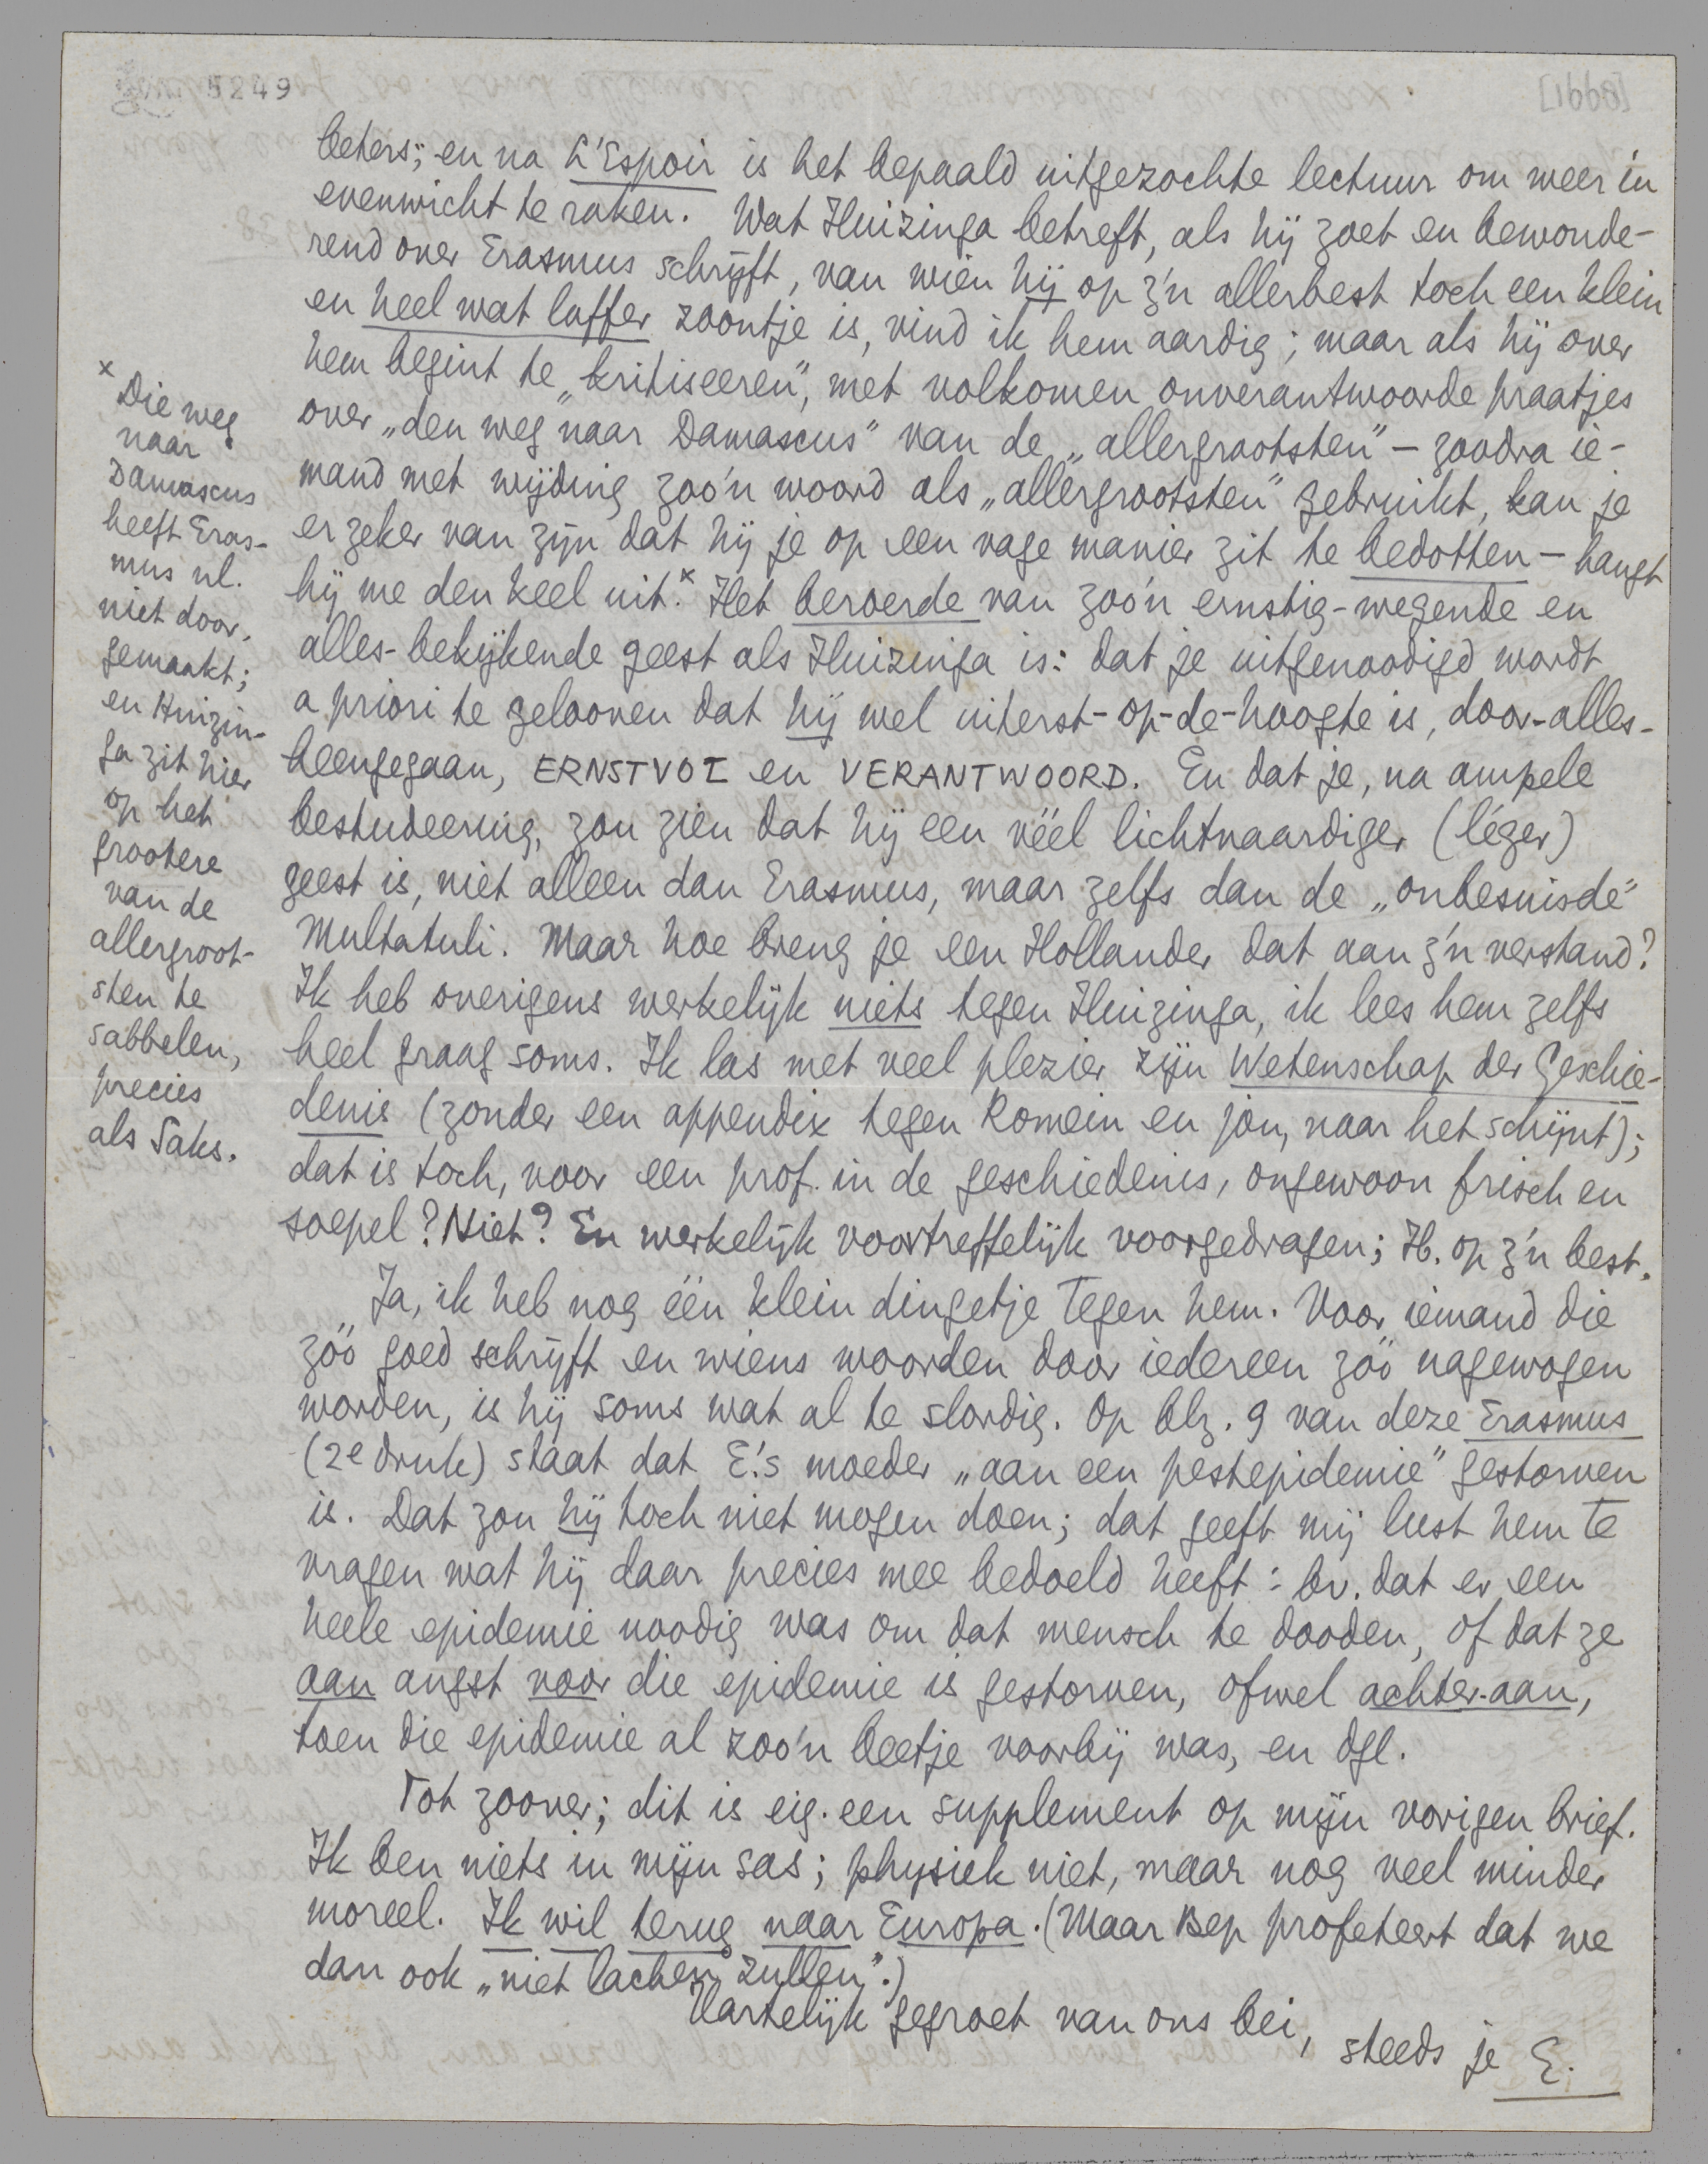 5249
beters; en na L'Espoir is het bepaald uitgezochte lectuur om weer in
evenwicht te raken. Wat Huizinga betreft, als hij zoet en bewonde-
rend over Erasmus schrijft, van wien hij op z'n allerbest toch een klein
en heel wat laffer zoontje is, vind ik hem aardig; maar als hij over
hem begint te „kritiseeren", met volkomen onverantwoorde praatjes
over „den weg naar Damascus" van de „allergrootsten" – zoodra ie-
mand met wijding zoo'n woord als „allergrootsten" gebruikt, kan je
er zeker van zijn dat hij je op een vage manier zit te bedotten – hangt
hij me den keel uit.x Het beroerde van zoo'n ernstig-wegende en
alles-bekijkende geest als Huizinga is: dat je uitgenoodigd wordt
a priori te gelooven dat hij wel uiterst-op-de-hoogte is, door-alles-
heengegaan, ERNSTVOL en VERANTWOORD. En dat je, na ampele
bestudeering, zou zien dat hij een véél lichtvaardiger (léger)
geest is, niet alleen dan Erasmus, maar zelfs dan de „onbesuisde"
Multatuli. Maar hoe breng je een Hollander dat aan z'n verstand?
Ik heb overigens werkelijk niets tegen Huizinga, ik lees hem zelfs
heel graag soms. Ik las met veel plezier zijn Wetenschap der Geschie-
denis (zonder een appendix tegen Romein en jou, naar het schijnt);
dat is toch, voor een prof. in de geschiedenis, ongewoon frisch en
soepel? Niet? En werkelijk voortreffelijk voorgedragen; H. op z'n best.
Ja, ik heb nog één klein dingetje tegen hem. Voor iemand die
zóó goed schrijft en wiens woorden door iedereen zóó nagewogen
worden, is hij soms wat al te slordig. Op blz. 9 van deze Erasmus
(2e druk) staat dat E.'s moeder „aan een pestepidemie" gestorven
is. Dat zou hij toch niet mogen doen; dat geeft mij lust hem te
vragen wat hij daar precies mee bedoeld heeft: bv. dat er een
heele epidemie noodig was om dat mensch te dooden, of dat ze
aan angst voor die epidemie is gestorven, ofwel achter-aan,
toen die epidemie al zoo'n beetje voorbij was, en dgl.
Tot zoover; dit is eig. een supplement op mijn vorigen brief.
Ik ben niets in mijn sas; physiek niet, maar nog veel minder
moreel. Ik wil terug naar Europa. (Maar Bep profeteert dat we
dan ook „niet lachen zullen".)
Hartelijk gegroet van ons bei,
steeds je E.
x Die weg
naar
Damascus
heeft Eras-
mus nl.
niet door-
gemaakt;
en Huizin-
ga zit hier
op het
grootere
van de
allergroot-
sten te
sabbelen,
precies
als Saks.